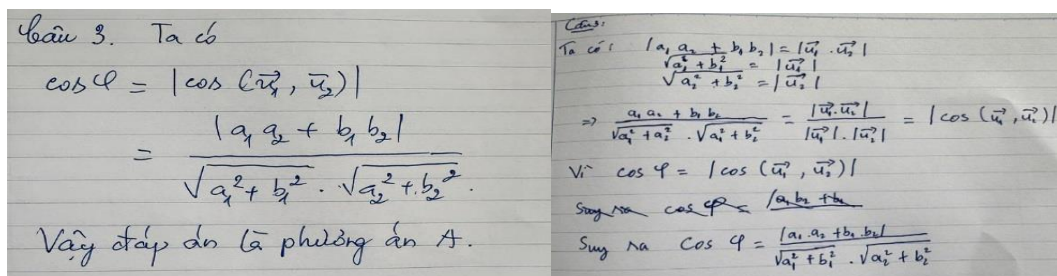 Câu 3. Ta có
cosφ = |cos (u₁⃗, u₂⃗)|
= |a₁ a₂ + b₁ b₂| / √(a₁² + b₁²) · √(a₂² + b₂²).
Vậy đáp án là phương án A.
Câu 3:
Ta có: |a₁ a₂ + b₁ b₂| = |u₁⃗ . u₂⃗|
√(a₁² + b₁²) = |u₁⃗|
√(a₂² + b₂²) = |u₂⃗|
=> a₁ a₂ + b₁ b₂ / √(a₁² + a₂²) . √(a₂² + b₂²) = |u₁⃗ . u₂⃗| / |u₁⃗| . |u₂⃗| = |cos (u₁⃗, u₂⃗)|
Vì cos φ = |cos (u₁⃗, u₂⃗)|
Suy ra cos φ = |a₁ b₂ + b₂
Suy ra Cos φ = |a₁ . a₂ + b₁ . b₂| / √(a₁² + b₁²) . √(a₂² + b₂²)